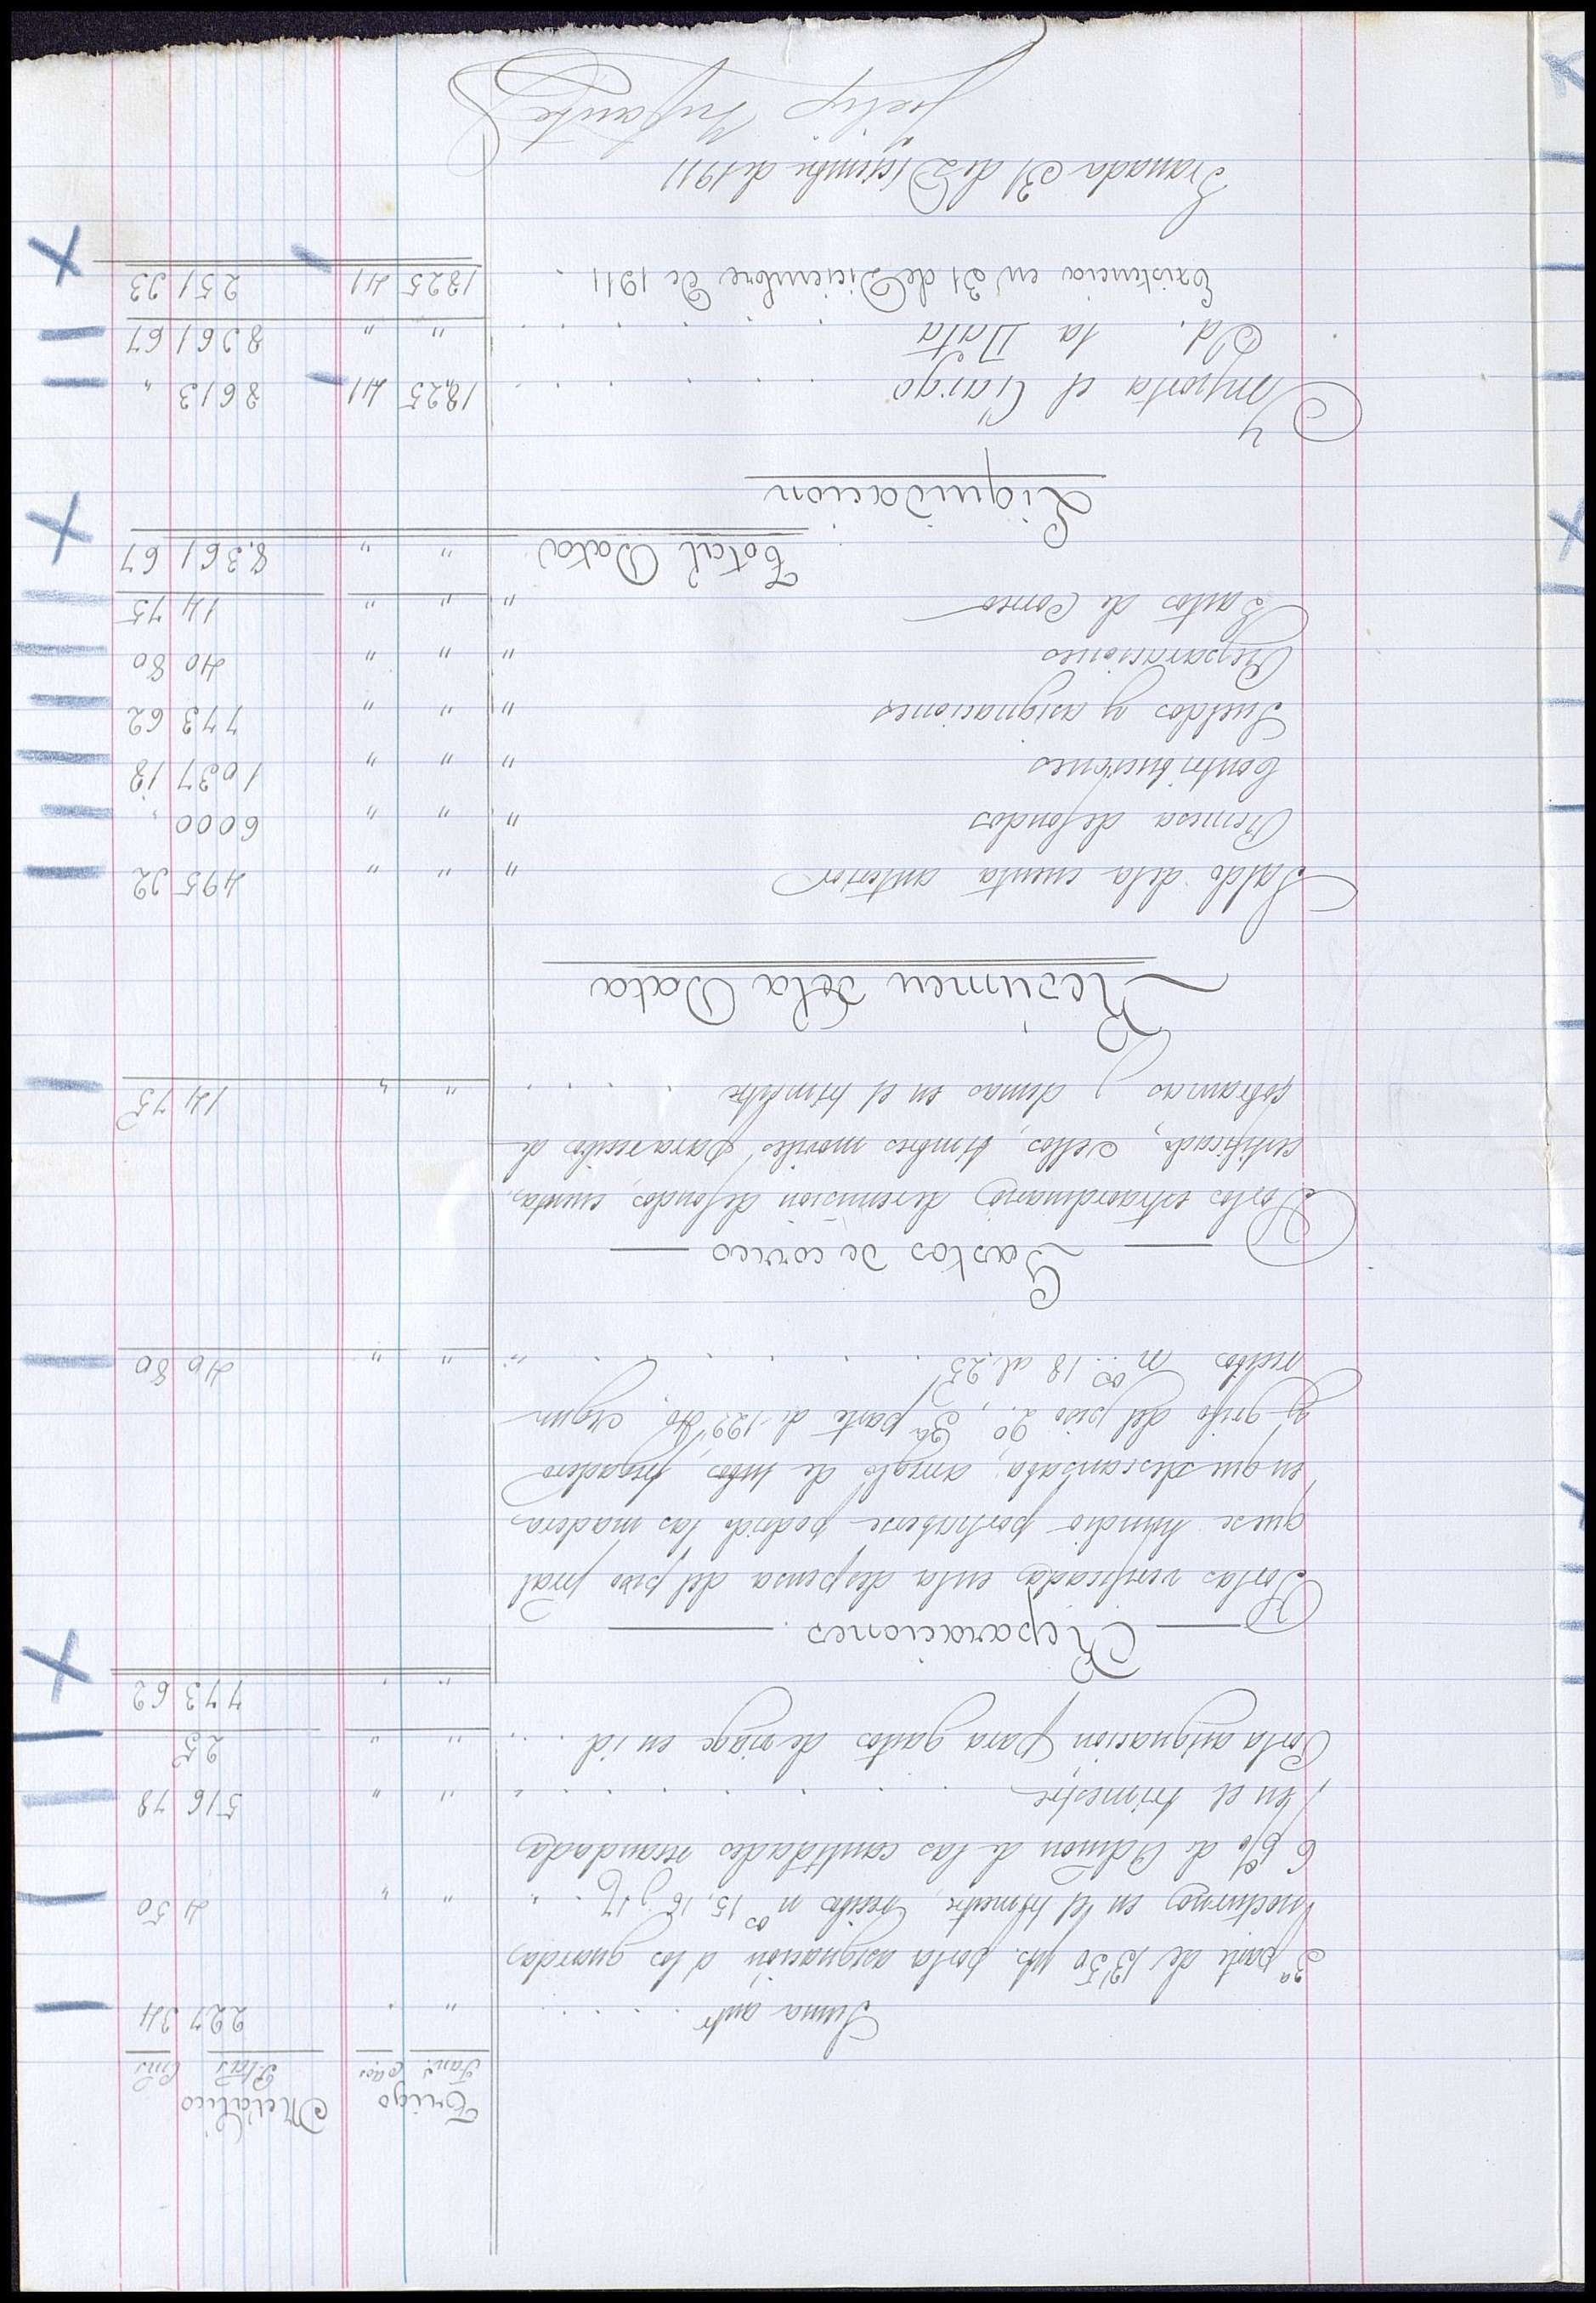 Trigo Metalico
Fan.s c.os Ptas Cms
Suma antr " " 227 34
3ª parte de 13'50 pts. por la asignación á los guardas
nocturnos en el trimestre, recibos nos 15, 16 y 17 " " 4 50
6 p% de Admon de las cantidades recaudadas
en el trimestre " " 516 78
Por la asignacion para gastos de viage en id. " " 25
" " 773 62
Reparaciones
Por las verificadas en la despensa del piso pral
que se hundio por haberse podrido las maderas
en que descansaba, arreglo de tubos, fregadero
y grifo del piso 2º, 3ª parte de 122'40, segun
recibos nos 18 al 25 " " " 40 80
Gastos de correo
Por los extraordinarios de remision de fondos, cuentas,
certificado, sellos, timbres moviles para recibos de
cobranzas y demas en el trimestre " " 14 75
Resumen de la Data
Saldo de la cuenta anterior " " " 495 32
Remesa de fondos " " " 6000 "
Contribuciones " " " 1037 18
Sueldos y asignaciones " " " 773 62
Reparaciones " " " 40 80
Gastos de Correo " " " 14 75
Total Data " " 8,361 67
Liquidacion
Importa el Cargo 18,25 41 8613 "
Id. la Data " " 8361 67
Existencia en 31 de Diciembre de 1911 1825 41 251 33
Granada 31 de Diciembre de 1911
Felip Infante